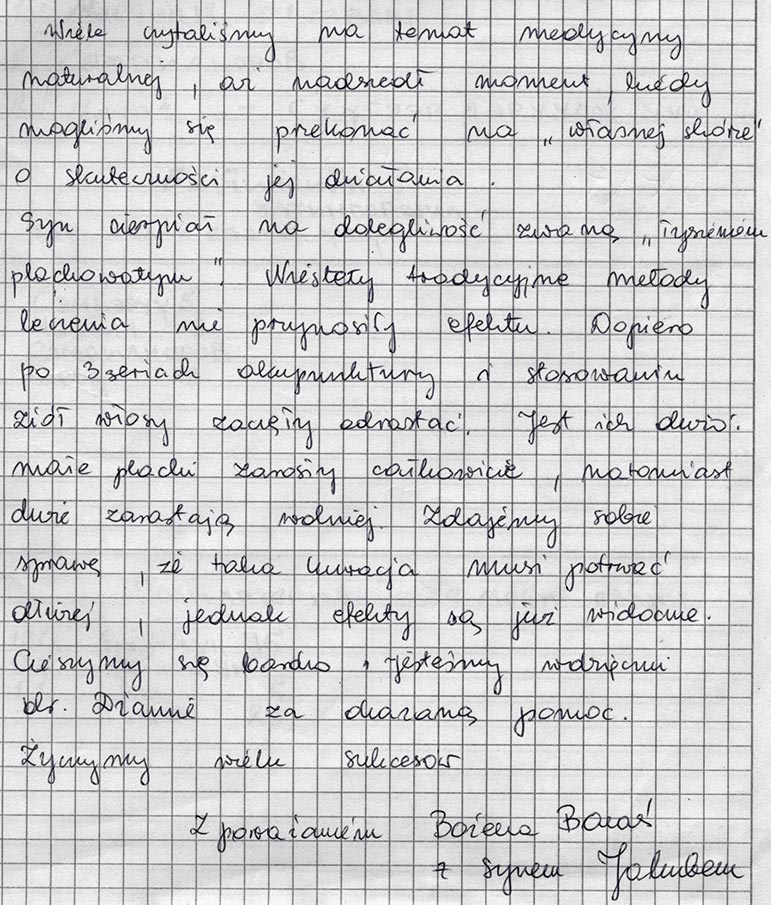 Wiele czytaliśmy na temat medycyny
naturalnej, aż nadszedł moment, kiedy
mogliśmy się przekonać na „własnej skórze"
o skuteczności jej działania.
Syn cierpiał na dolegliwość zwaną „łysieniem
plackowatym". Niestety tradycyjne metody
leczenia nie przynosiły efektu. Dopiero
po 3 seriach akupunktury i stosowaniu
ziół włosy zaczęły odrastać. Jest ich dużo.
małe placki zarosły całkowicie, natomiast
duże zarastają wolniej. Zdajemy sobie
sprawę, że taka kuracja musi potrwać
dłużej, jednak efekty są już widoczne.
Cieszymy się bardzo, jesteśmy wdzięczni
dr. za okazaną pomoc.
Życzymy wielu sukcesów
Z poważaniem Bożena
z synem Jakubem